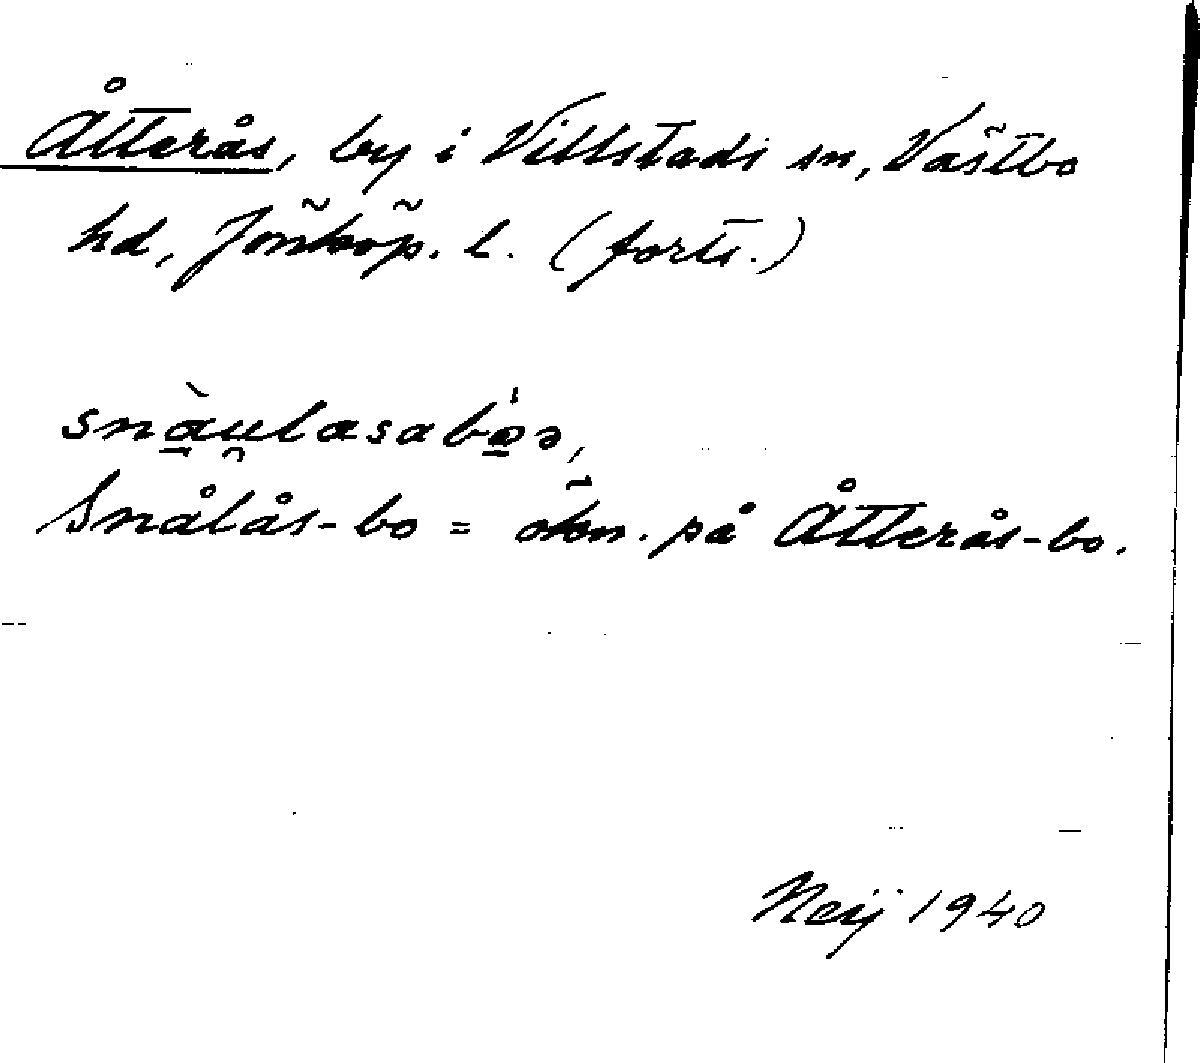 Åtterås, by i Villstads sn, Västbo
hd, Jönköp. l. (forts.)
snàu̯lasabo̱ə,
Snålås-bo = ökn. på Åtterås-bo.
Neij 1940